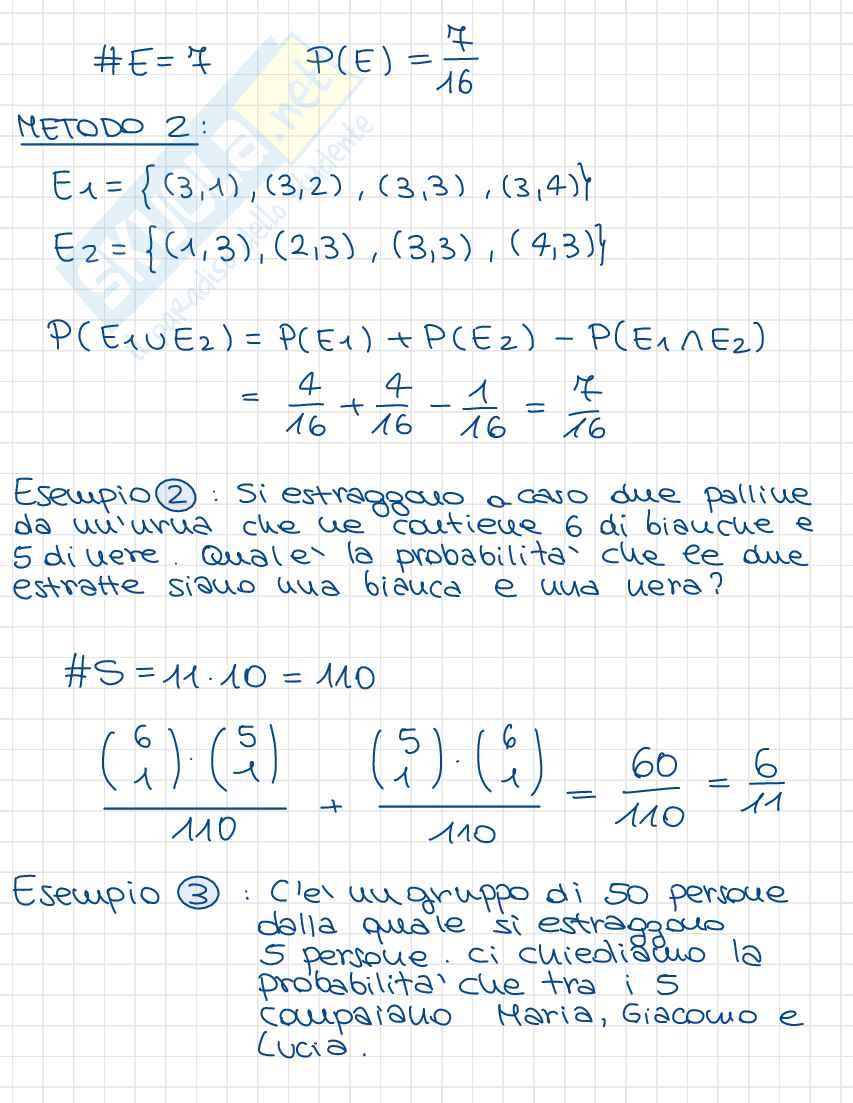 #E = 7 P(E) = 7/16
METODO 2:
E1 = {(3,1), (3,2), (3,3), (3,4)}
E2 = {(1,3), (2,3), (3,3), (4,3)}
P(E1∪E2) = P(E1) + P(E2) - P(E1∩E2)
= 4/16 + 4/16 - 1/16 = 7/16
Esempio 2 : Si estraggono a caso due palline
da un'urna che ne contiene 6 di bianche e
5 di nere. Qual è la probabilità che le due
estratte siano una bianca e una nera?
#S = 11·10 = 110
(6 1)·(5 1)/110 + (5 1)·(6 1)/110 = 60/110 = 6/11
Esempio 3 : C'è un gruppo di 50 persone
dalla quale si estraggono
5 persone. ci chiediamo la
probabilità che tra i 5
compaiano Maria, Giacomo e
Lucia.
SKUOLA.net